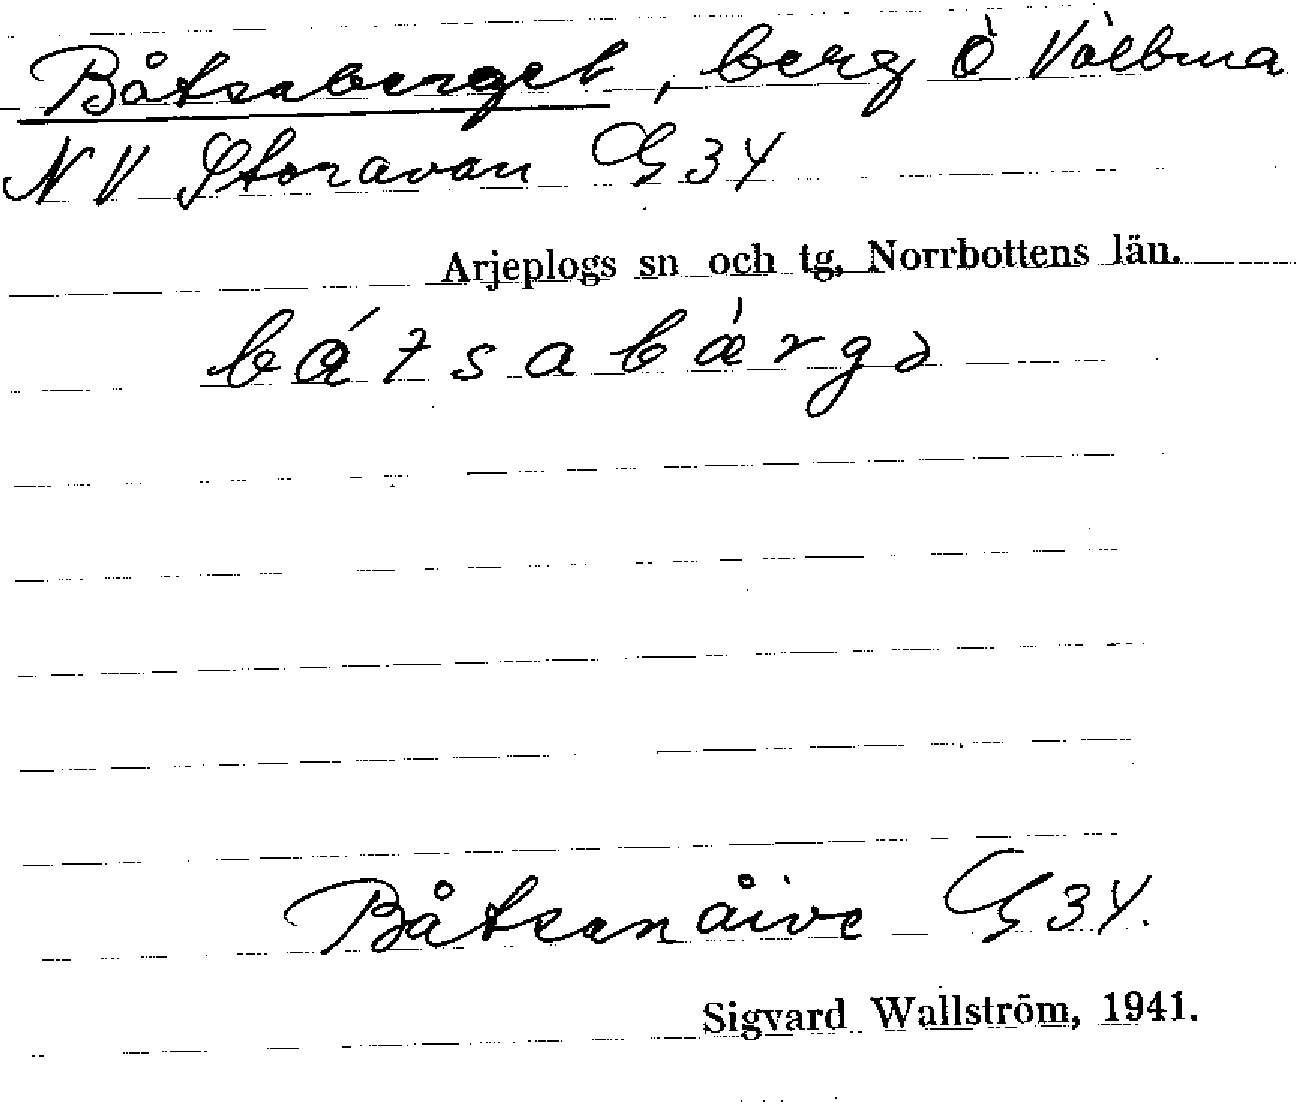 Båtsaberget, berg Ö Välbma
NV Storavan G34
Arjeplogs sn och tg, Norrbottens län.
bátsabárgə
Båtsanåive G34.
Sigvard Wallström, 1941.